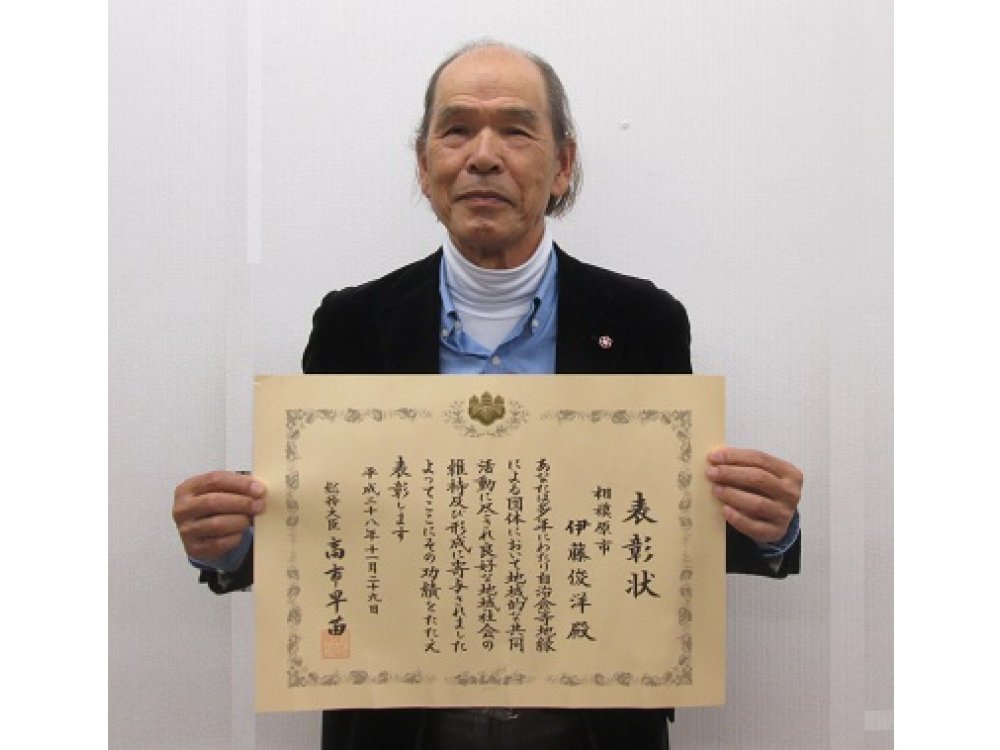 表彰状
相模原市
伊藤俊洋殿
あなたは多年にわたり自治会等地縁
による団体において地域的な共同
活動に尽され良好な地域社会の
維持及び形成に寄与されました
よってここにその功績をたたえ
表彰します
平成二十八年十一月二十九日
総務大臣 高市早苗